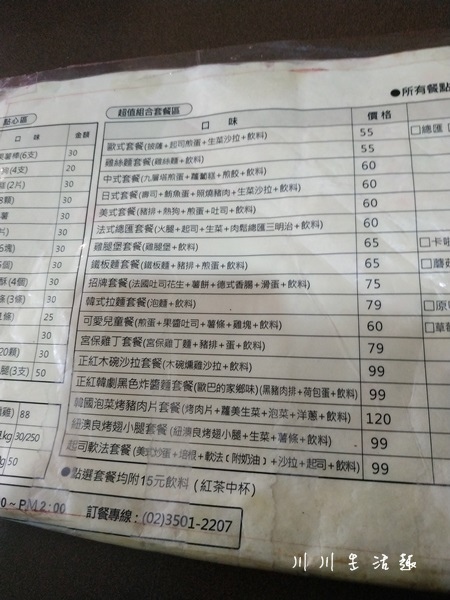 ●所有餐點
點心區
口 味 金額
30
(4支) 20
(2片) 30
30
30
30
30
(4個) 30
(3條) 30
25
30
30
(3支) 50
88
30/250
50
超值組合套餐區
口 味 價格
歐式套餐(披薩+起司煎蛋+生菜沙拉+飲料) 55
雞絲麵套餐(雞絲麵+飲料) 55
中式套餐(九層塔煎蛋+蘿蔔糕+煎餃+飲料) 60
日式套餐(壽司+鮪魚蛋+照燒豬肉+生菜沙拉+飲料) 60
美式套餐(豬排+熱狗+煎蛋+吐司+飲料) 60
法式總匯套餐(火腿+起司+生菜+肉鬆總匯三明治+飲料) 60
雞腿堡套餐(雞腿堡+飲料) 65
鐵板麵套餐(鐵板麵+豬排+煎蛋+飲料) 65
招牌套餐(法國吐司花生+薯餅+德式香腸+滑蛋+飲料) 75
韓式拉麵套餐(泡麵+飲料) 79
可愛兒童餐(煎蛋+果醬吐司+薯條+雞塊+飲料) 60
宮保雞丁套餐(宮保雞丁麵+豬排+蛋+飲料) 79
正紅木碗沙拉套餐(木碗燻雞沙拉+飲料) 99
正紅韓劇黑色炸醬麵套餐(歐巴的家鄉味)(黑豬肉排+荷包蛋+飲料) 99
韓國泡菜烤豬肉片套餐(烤肉片+蘿美生菜+泡菜+洋蔥+飲料) 120
紐澳良烤翅小腿套餐(紐澳良烤翅小腿+生菜+薯條+飲料) 99
起司軟法套餐(美式炒蛋+培根+軟法(附奶油)+沙拉+起司+飲料) 99
□總匯
●點選套餐均附15元飲料(紅茶中杯)
0~P.M.2:00
訂餐專線:(02)3501-2207
川川生活趣